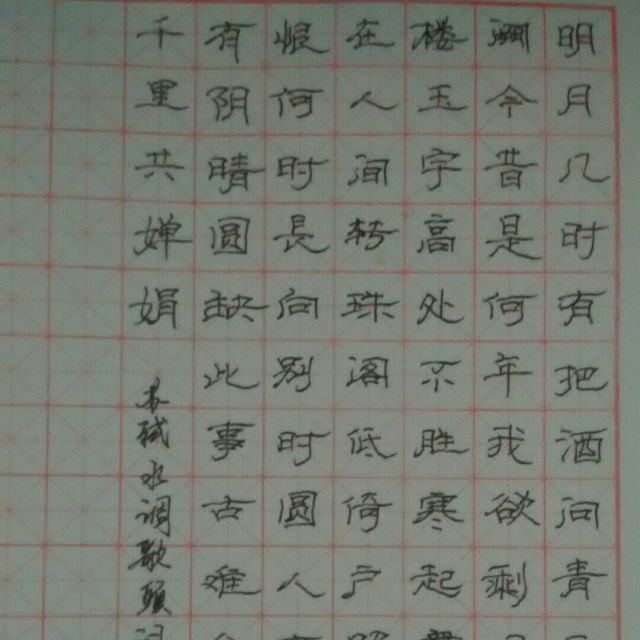 明月几时有把酒问青
阙今昔是何年我欲剩
楼玉宇高处不胜寒起
在人间珠阁低倚户
恨何时長向别时圆人
有阴晴圆缺此事古难
千里共婵娟 轼水调歌头